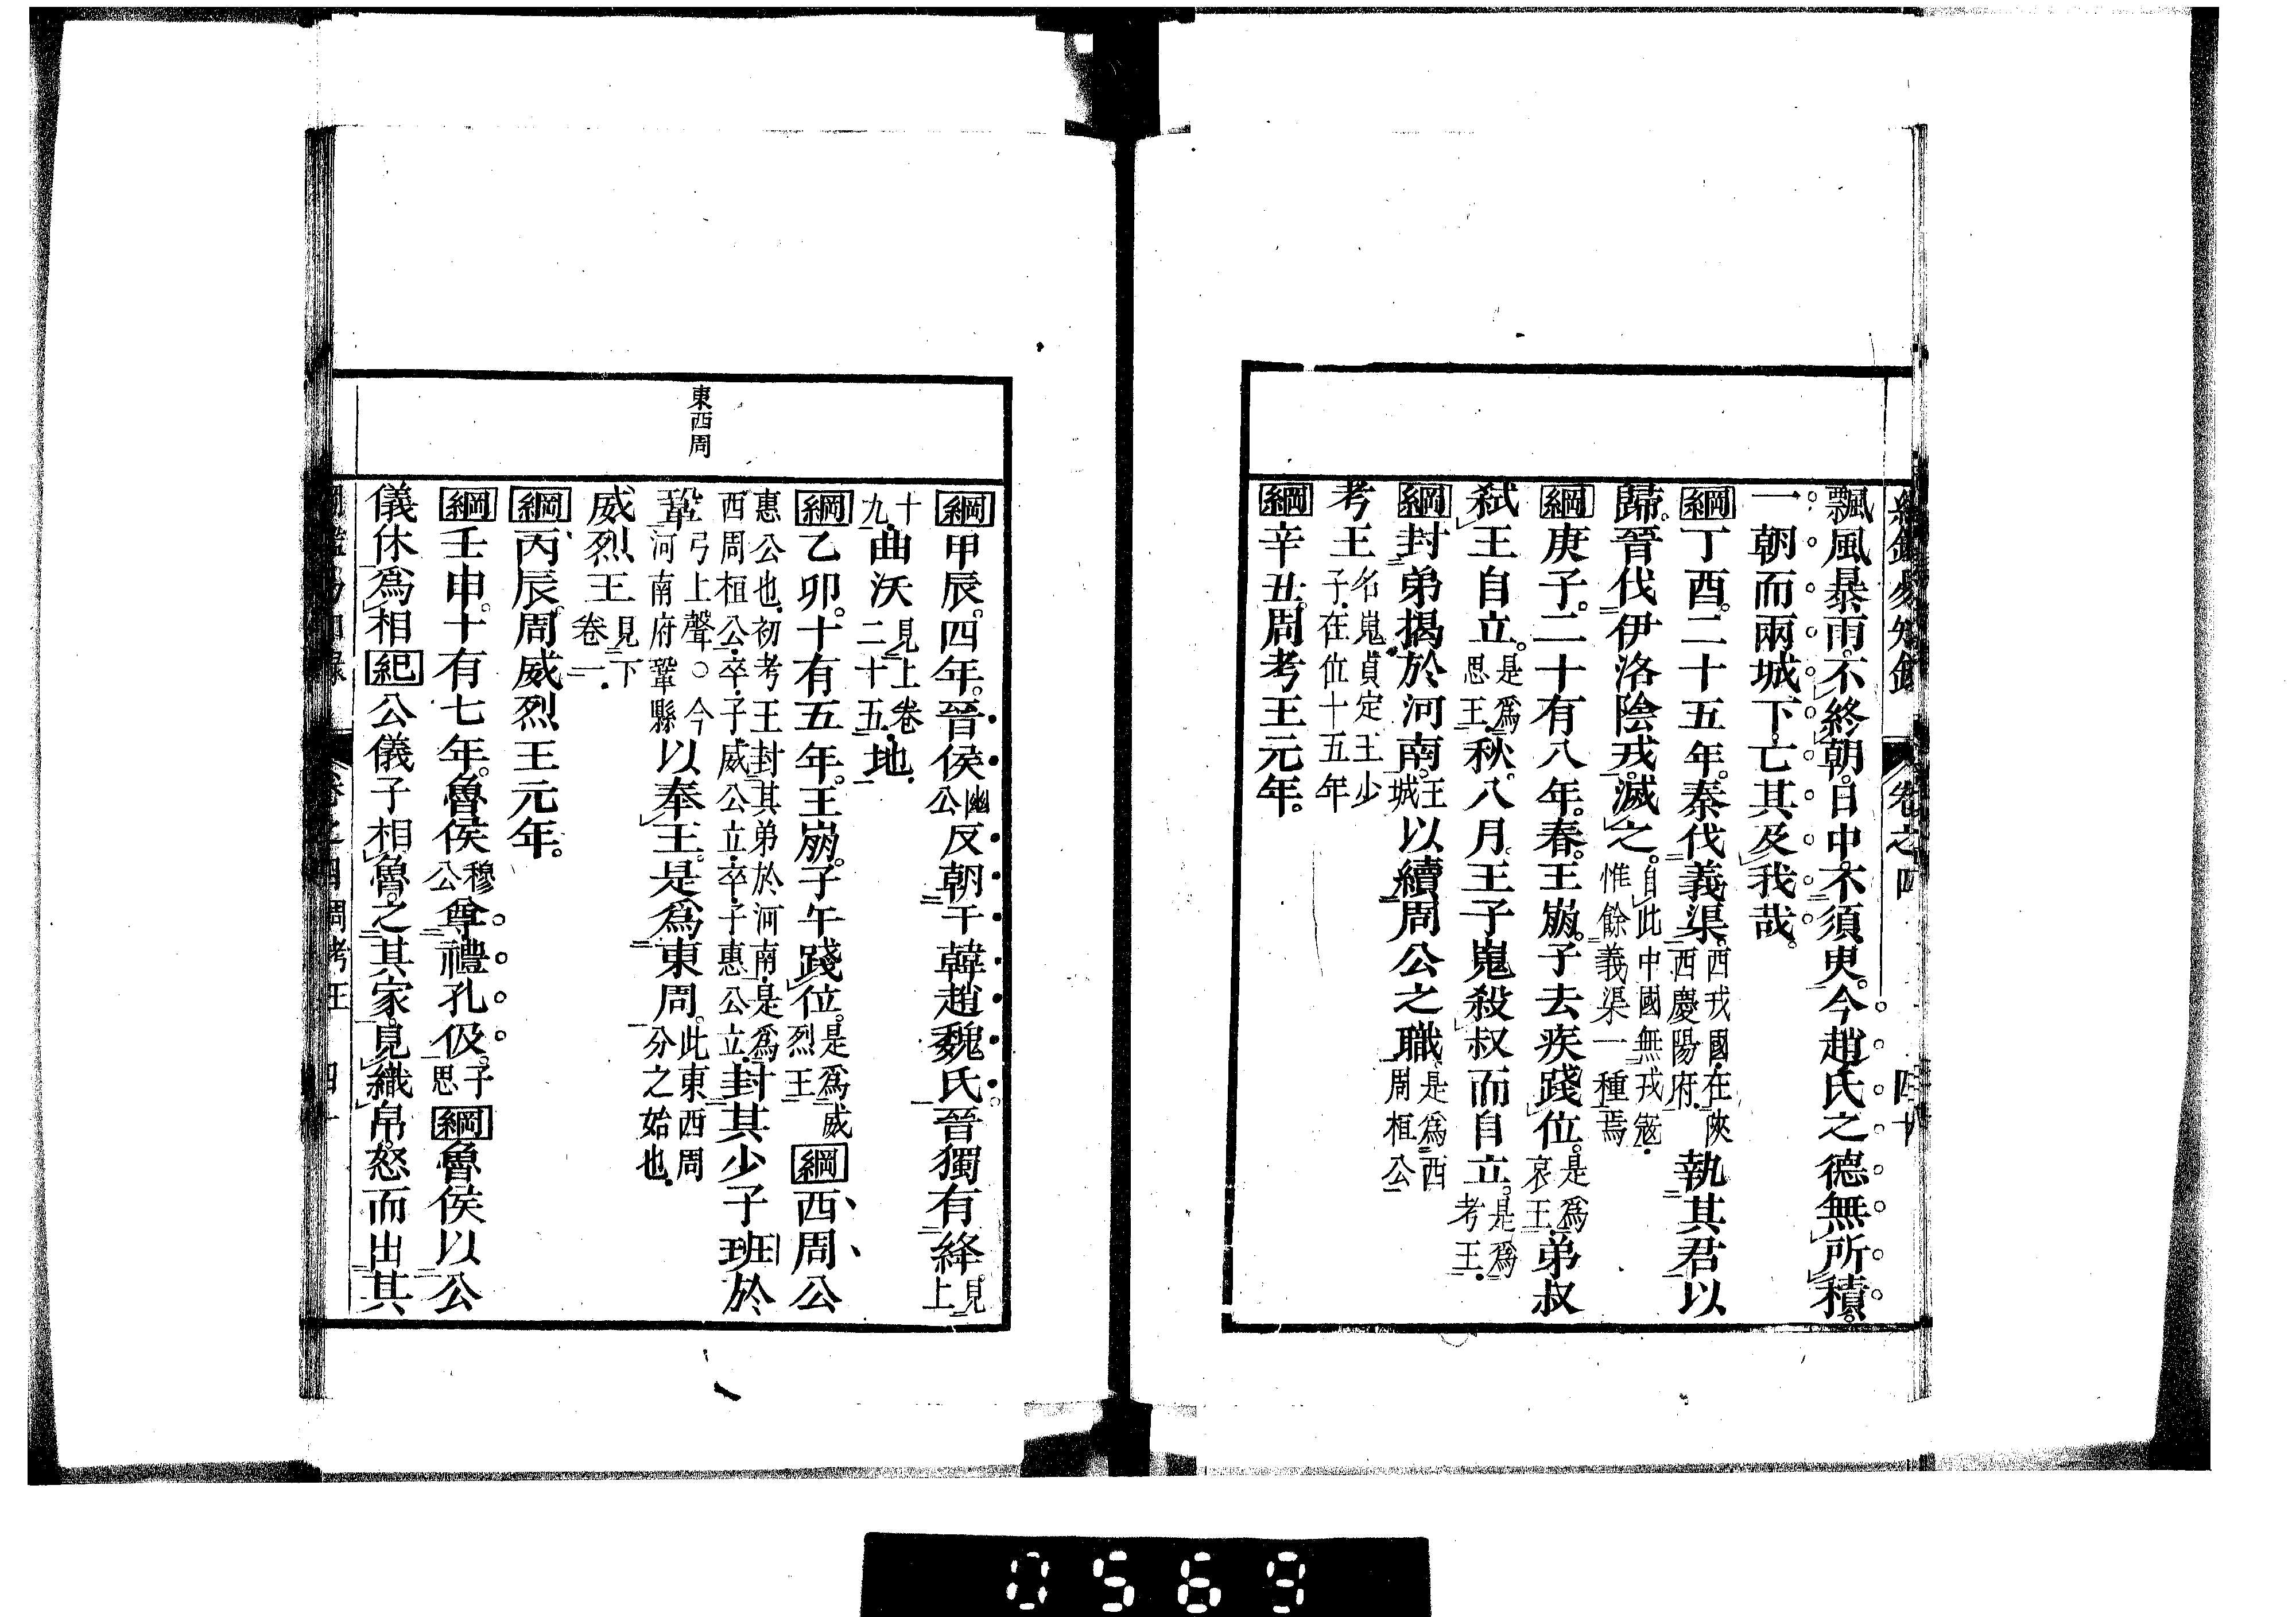 飄風暴雨。不終朝。日中不須臾。今趙氏之德無所積。
一朝而兩城下。亡其及我哉。
綱丁酉。二十五年。秦伐義渠。西戎國。在陝西慶陽府。執其君以
歸。晉伐伊洛陰戎。滅之。自此中國無戎寇。惟餘義渠一種焉
綱庚子。二十有八年。春。王崩。子去疾踐位。是爲哀王。弟叔
弒王自立。是爲思王。秋。八月。王子嵬殺叔而自立。是爲考王。
綱封弟揭於河南。王城以續周公之職。是爲西周桓公
考王名嵬。貞定王少子。在位十五年
綱辛丑。周考王元年。
卷之四
四十
東西周
綱甲辰。四年。晉侯幽公反朝于韓趙魏氏。晉獨有絳見上
十九曲沃見上卷二十五。地。
綱乙卯。十有五年。王崩。子午踐位。是爲威烈王綱西周公
惠公也。初考王封其弟於河南。是爲西周桓公。卒。子威公立。卒。子惠公立。封其少子班於
鞏弓上聲○今河南府鞏縣以奉王。是爲東周。此東西周分之始也。
威烈王見下卷一。
綱丙辰。周威烈王元年。
綱壬申。十有七年。魯侯穆公尊禮孔伋。子思綱魯侯以公
儀休爲相紀公儀子相魯。之其家。見織帛。怒而出其
卷之四 周考王